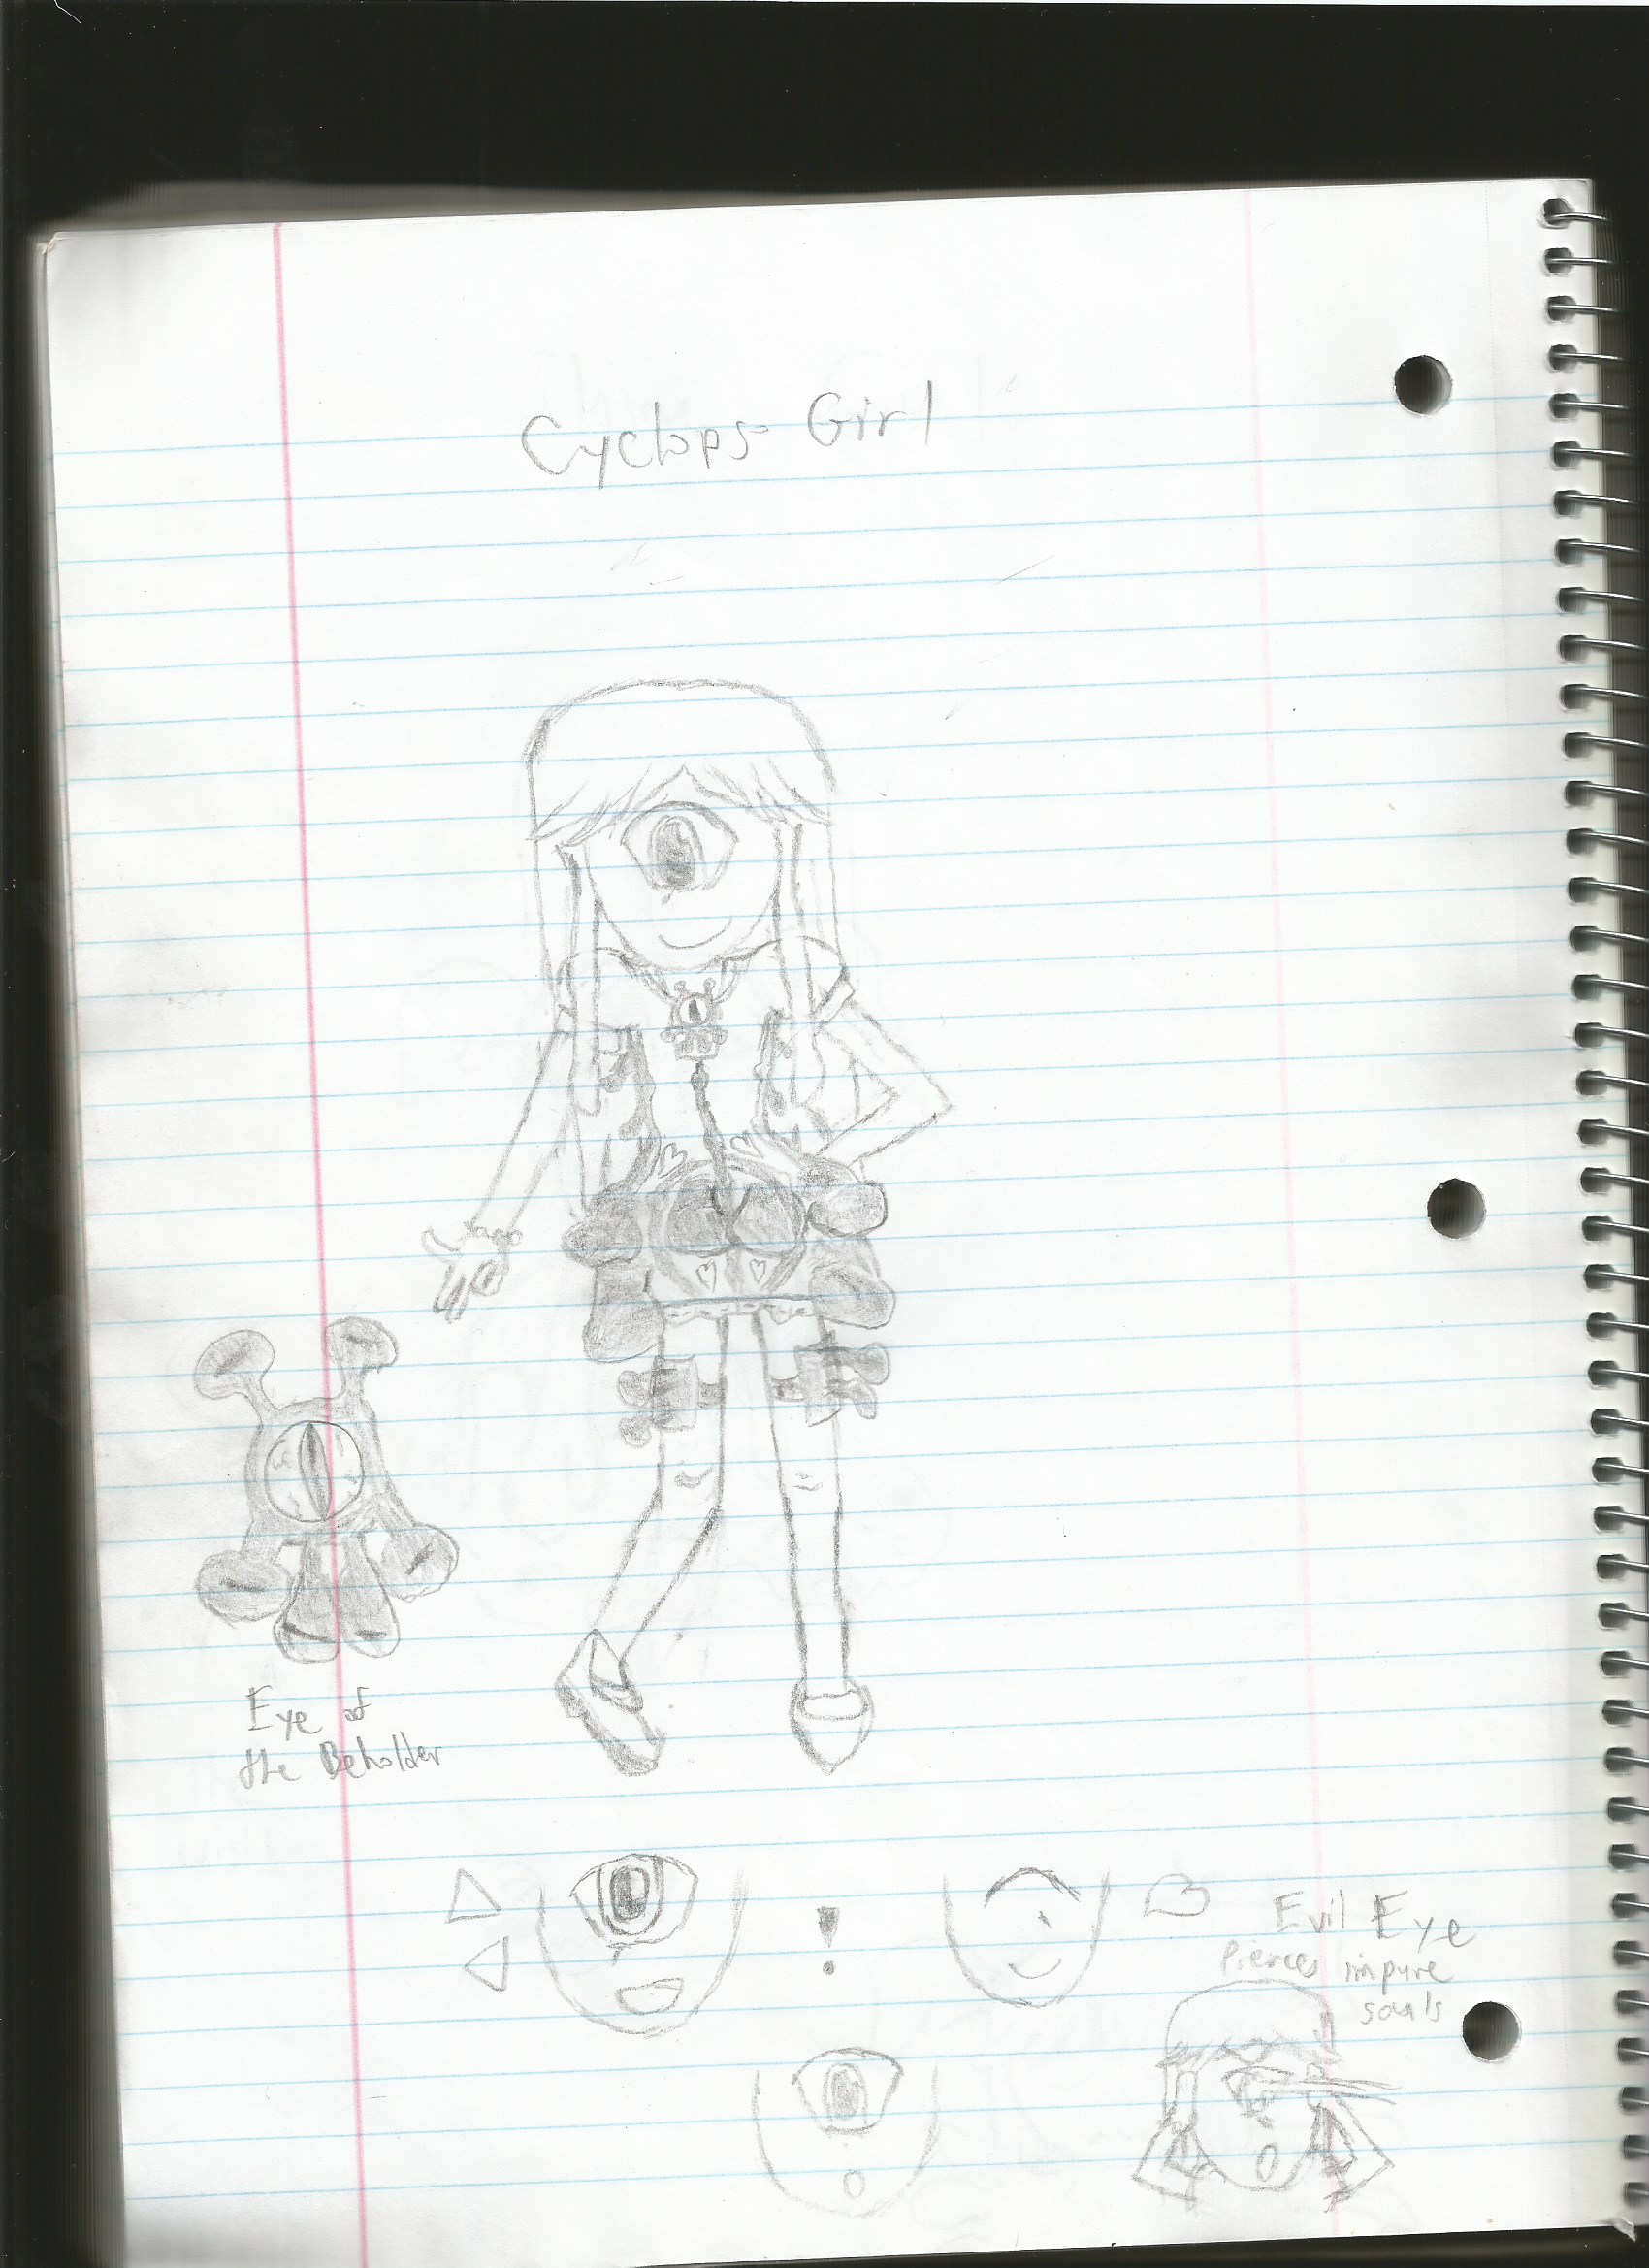 Cyclops Girl
Eye of
the Beholder
!
Evil Eye
Pierces impure
souls